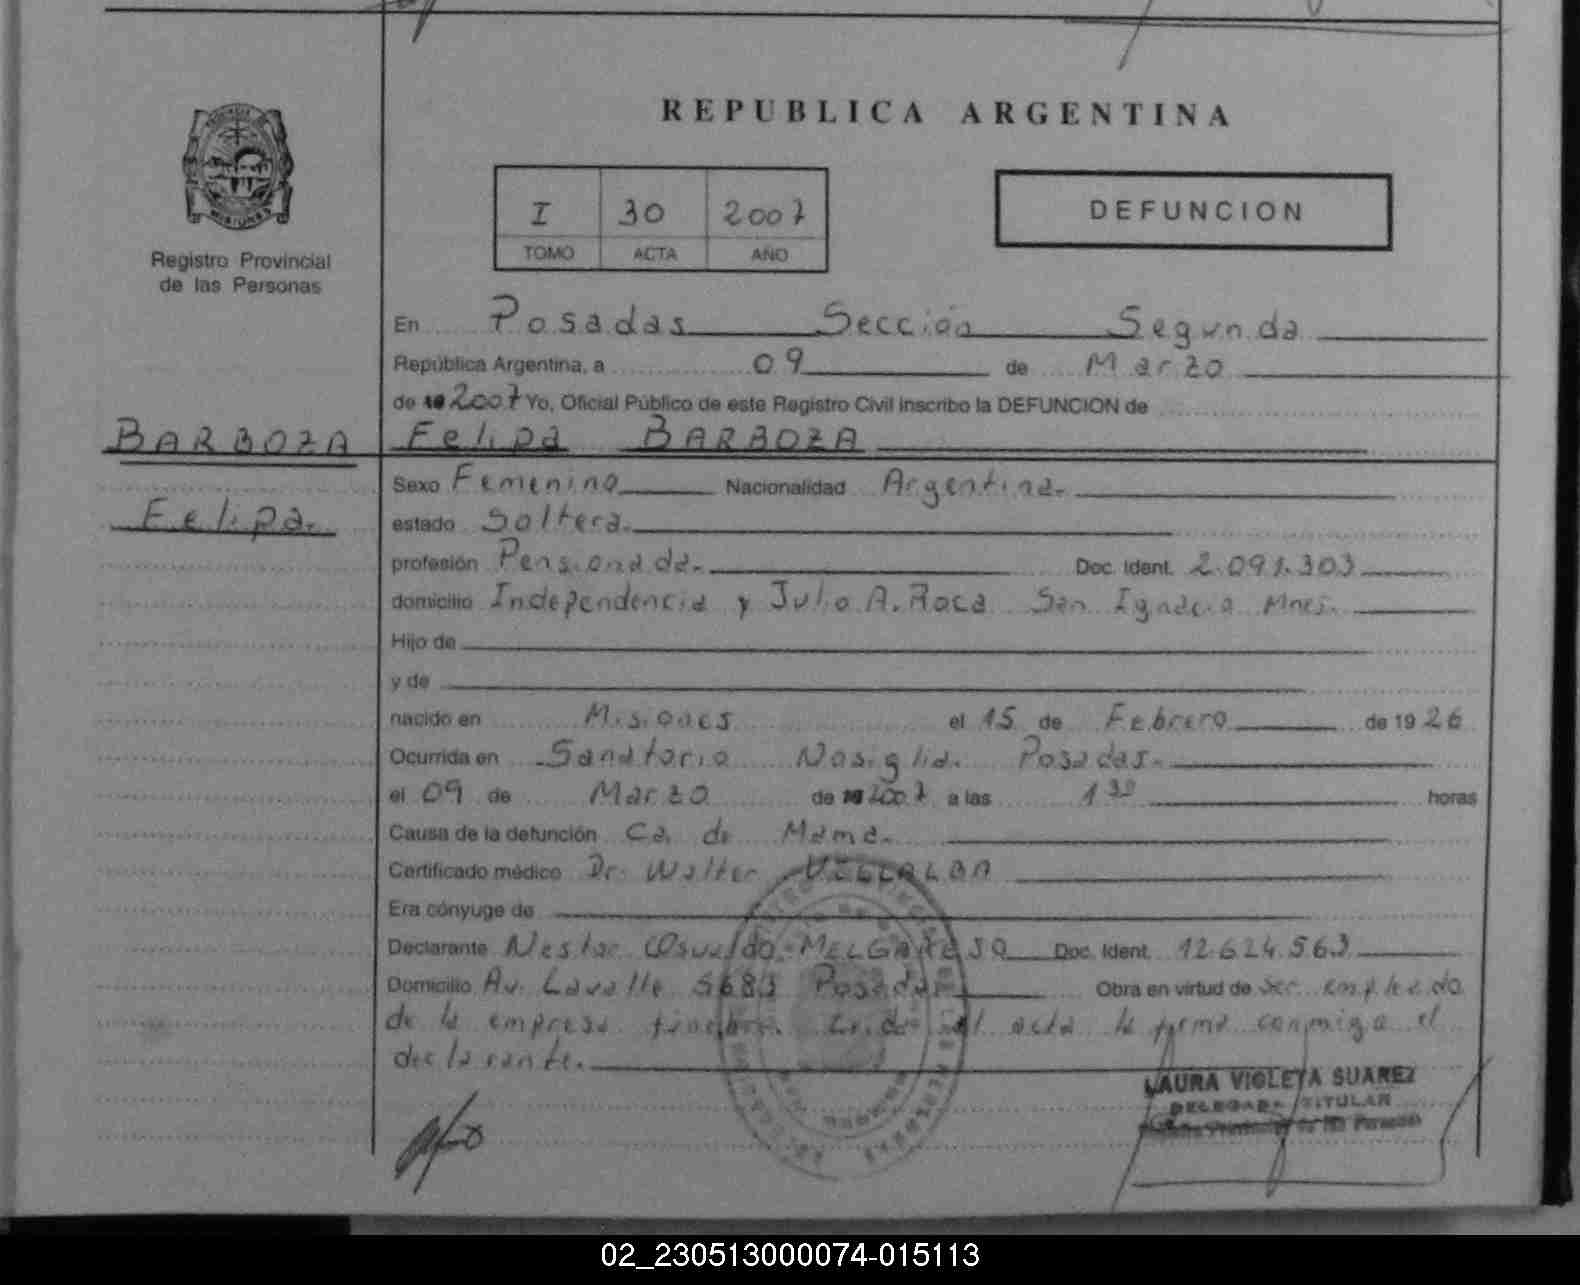 REPUBLICA ARGENTINA
I 30 2007
TOMO ACTA AÑO
DEFUNCION
Registro Provincial
de las Personas
En Posadas Sección Segunda
República Argentina, a 09 de Marzo
de 19 2007 Yo, Oficial Público de este Registro Civil inscribo la DEFUNCION de
BARBOZA Felipa BARBOZA
Sexo Femenino Nacionalidad Argentina.
Felipa.
estado Soltera.
profesión Pensionada. Doc. Ident. 2.091.303
domicilio Independencia y Julio A. Roca San Ignacio Mnes.
Hijo de
y de
nacido en Misiones el 15 de Febrero de 19 26
Ocurrida en Sanatorio Nosiglia. Posadas.
el 09 de Marzo de 19 2007 a las 1 30 horas
Causa de la defunción Ca. de Mama.
Certificado médico Dr. Walter VILLALBA
Era cónyuge de
Declarante Nestor Osvaldo MELGAREJO Doc. Ident. 12.624.563
Domicilio Av. Lavalle 5683 Posadas Obra en virtud de ser empleado
de la empresa funebre. Leida el acta la firma conmigo el
declarante.
LAURA VIOLETA SUAREZ
DELEGADA TITULAR
Registro Provincial de las Personas
02_230513000074-015113